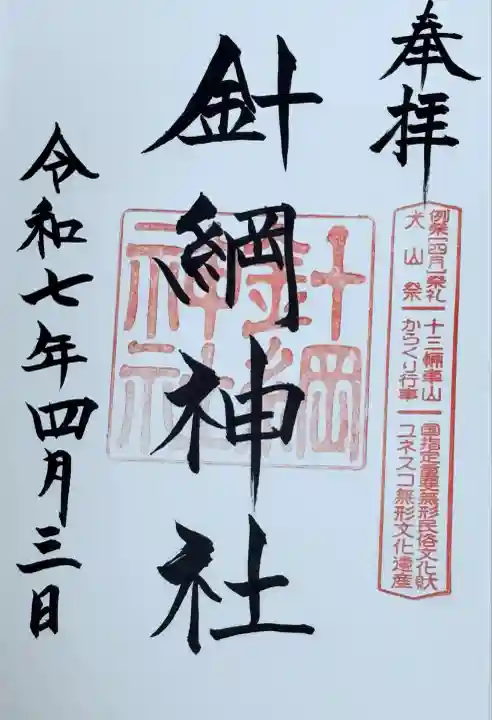 奉拝
例祭(四月)祭礼
犬山祭
十三輛車山
からくり行事
国指定重要無形民俗文化財
ユネスコ無形文化遺産
針綱神社
針綱神社
令和七年四月三日